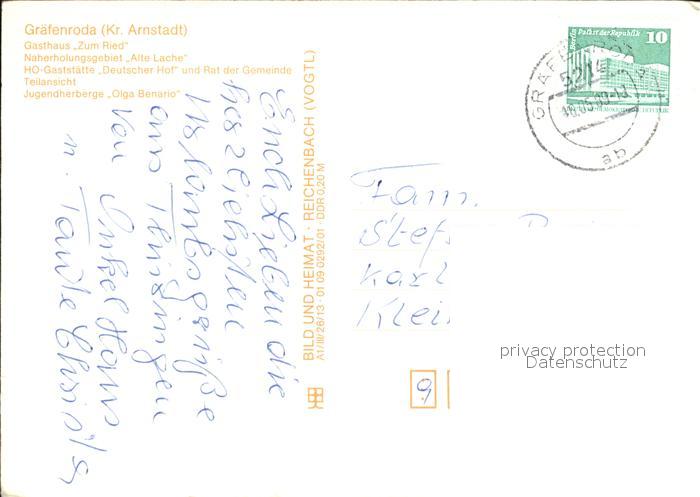 Gräfenroda (Kr. Arnstadt)
Gasthaus „Zum Ried"
Naherholungsgebiet „Alte Lache"
HO-Gaststätte „Deutscher Hof" und Rat der Gemeinde
Teilansicht
Jugendherberge „Olga Benario"
Euch Lieben die
herzliebsten
Urlaubsgrüße
aus Thüringen
von Onkel Hans
u. Tante Christ'l
BILD UND HEIMAT · REICHENBACH (VOGTL)
A1/III/26/13 01 09 0292/01 DDR 0,20 M
Berlin Palast der Republik 10
5214
ab
Fam.
Stef
Karl
Klei
9
privacy protection
Datenschutz